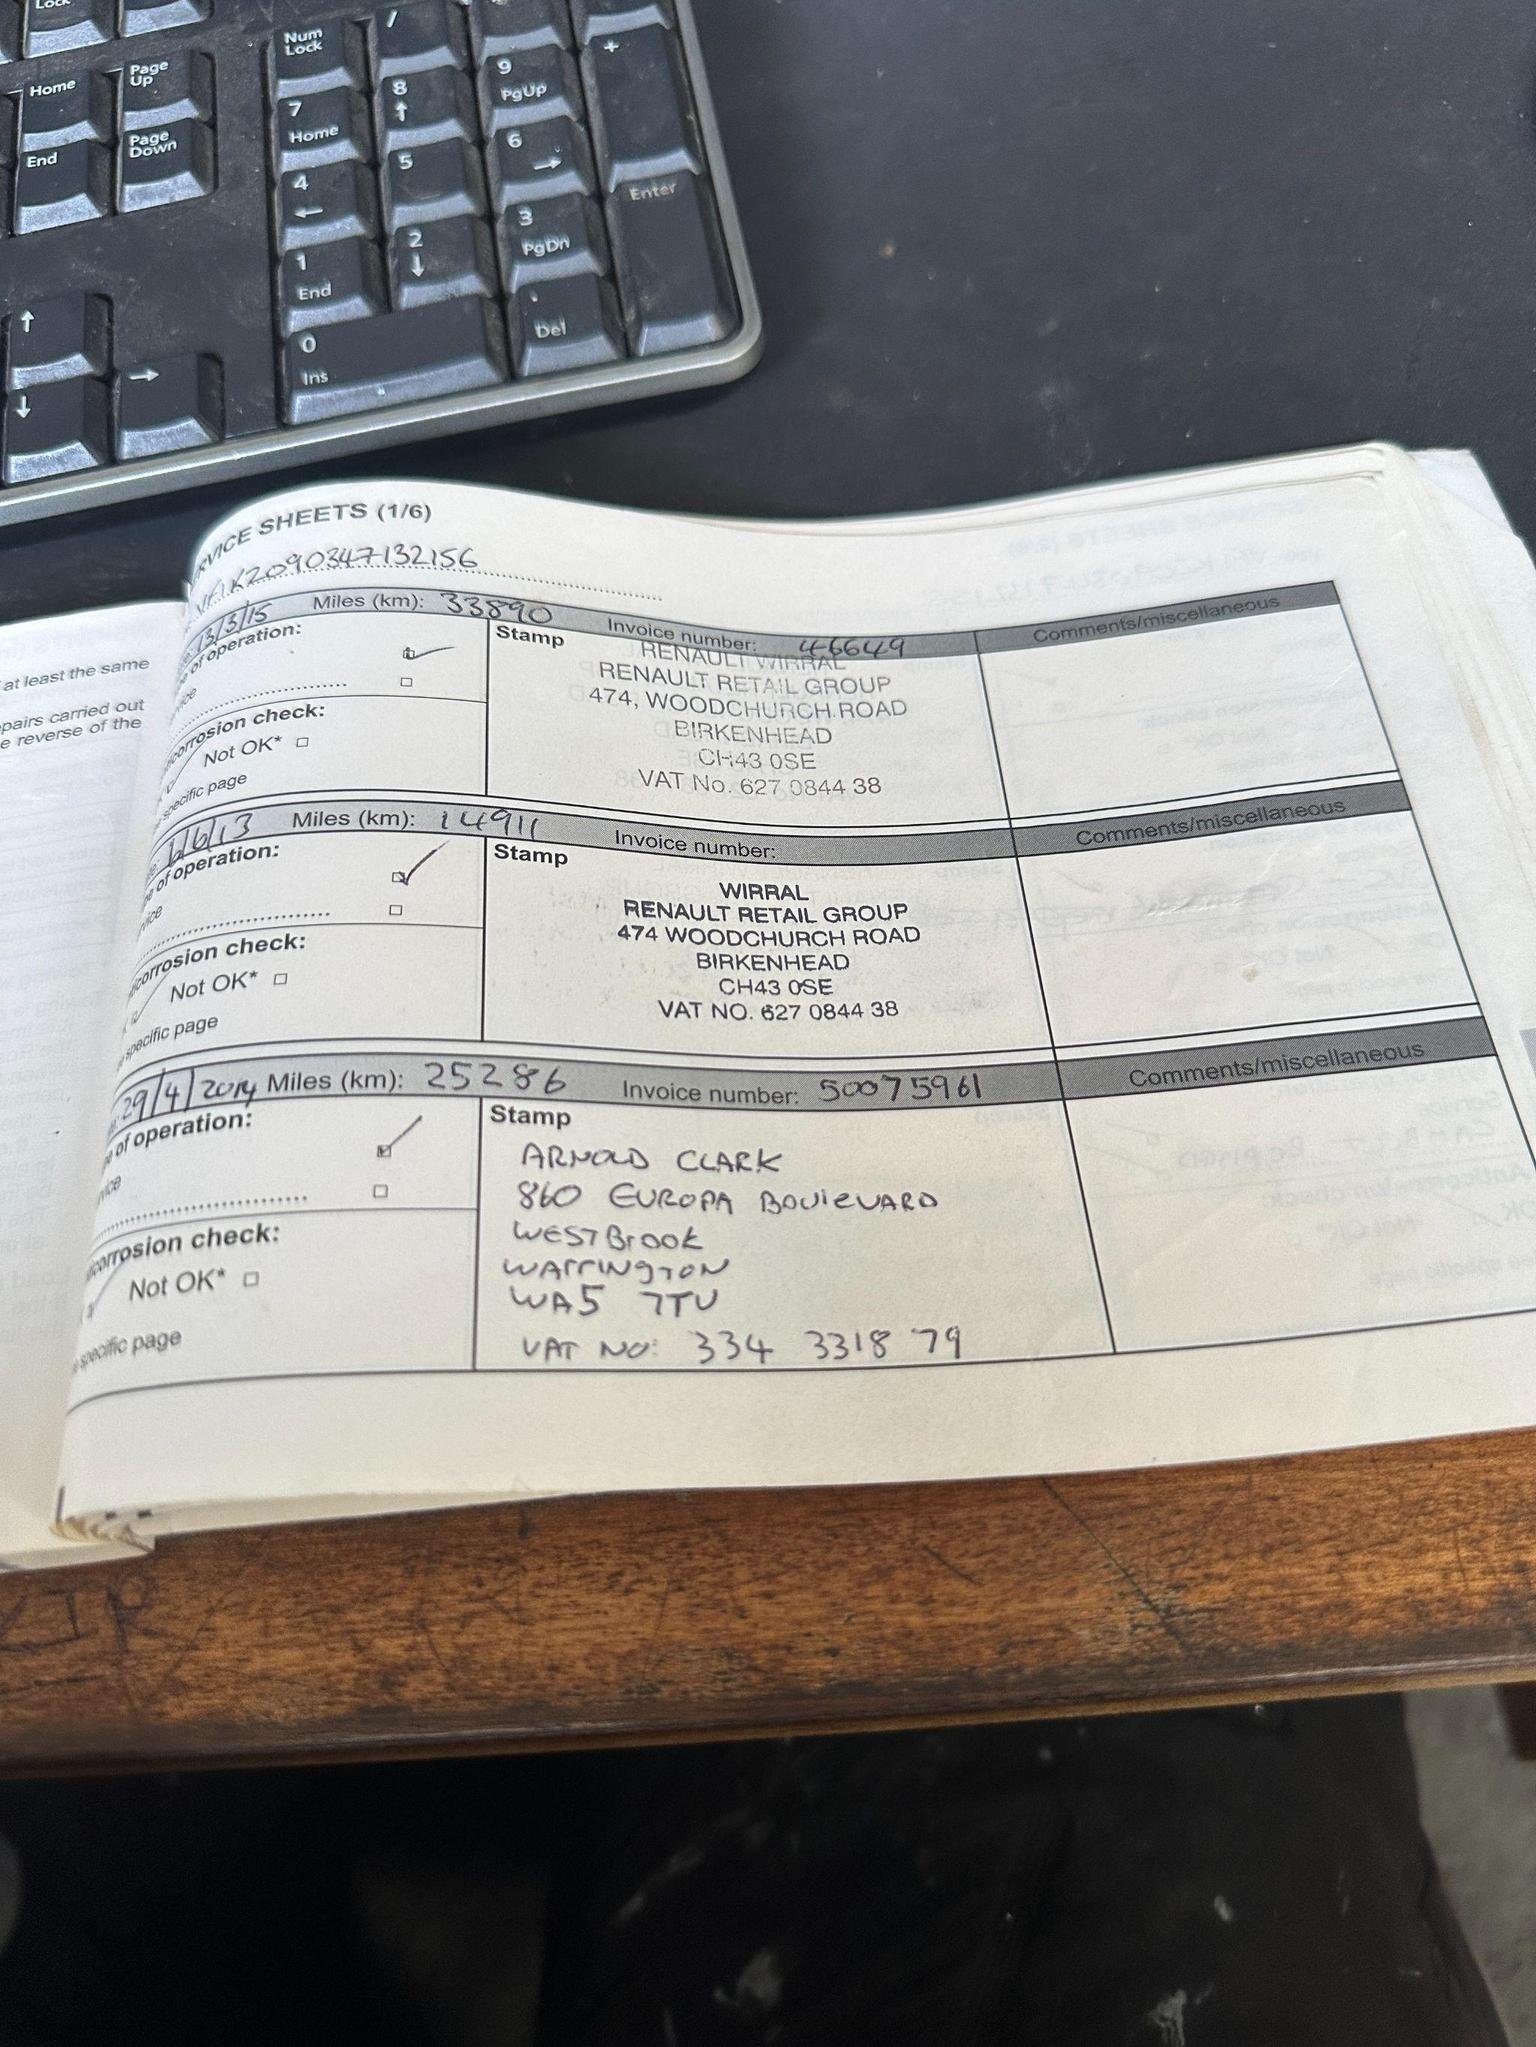 Lock
Home
Page Up
End
Page Down
Num Lock
/
7 Home
8
9 PgUp
+
4
5
6
1 End
2
3 PgDn
Enter
0 Ins
. Del
at least the same
pairs carried out
e reverse of the
RVICE SHEETS (1/6)
VF1KZ090347132156
13/3/15 Miles (km): 33890 Invoice number: 46649 Comments/miscellaneous
of operation:
Stamp
RENAULT WIRRAL
RENAULT RETAIL GROUP
474, WOODCHURCH ROAD
BIRKENHEAD
CH43 0SE
VAT No. 627 0844 38
vice
corrosion check:
Not OK*
specific page
/6/13 Miles (km): 14911 Invoice number: Comments/miscellaneous
e of operation:
Stamp
WIRRAL
RENAULT RETAIL GROUP
474 WOODCHURCH ROAD
BIRKENHEAD
CH43 0SE
VAT NO. 627 0844 38
vice
icorrosion check:
Not OK*
specific page
29/4/2014 Miles (km): 25286 Invoice number: 50075961 Comments/miscellaneous
e of operation:
Stamp
ARNOLD CLARK
860 EUROPA BOULEVARD
WESTBrOOK
WArrINgTON
WA5 7TU
VAT NO: 334 3318 79
vice
icorrosion check:
Not OK*
specific page